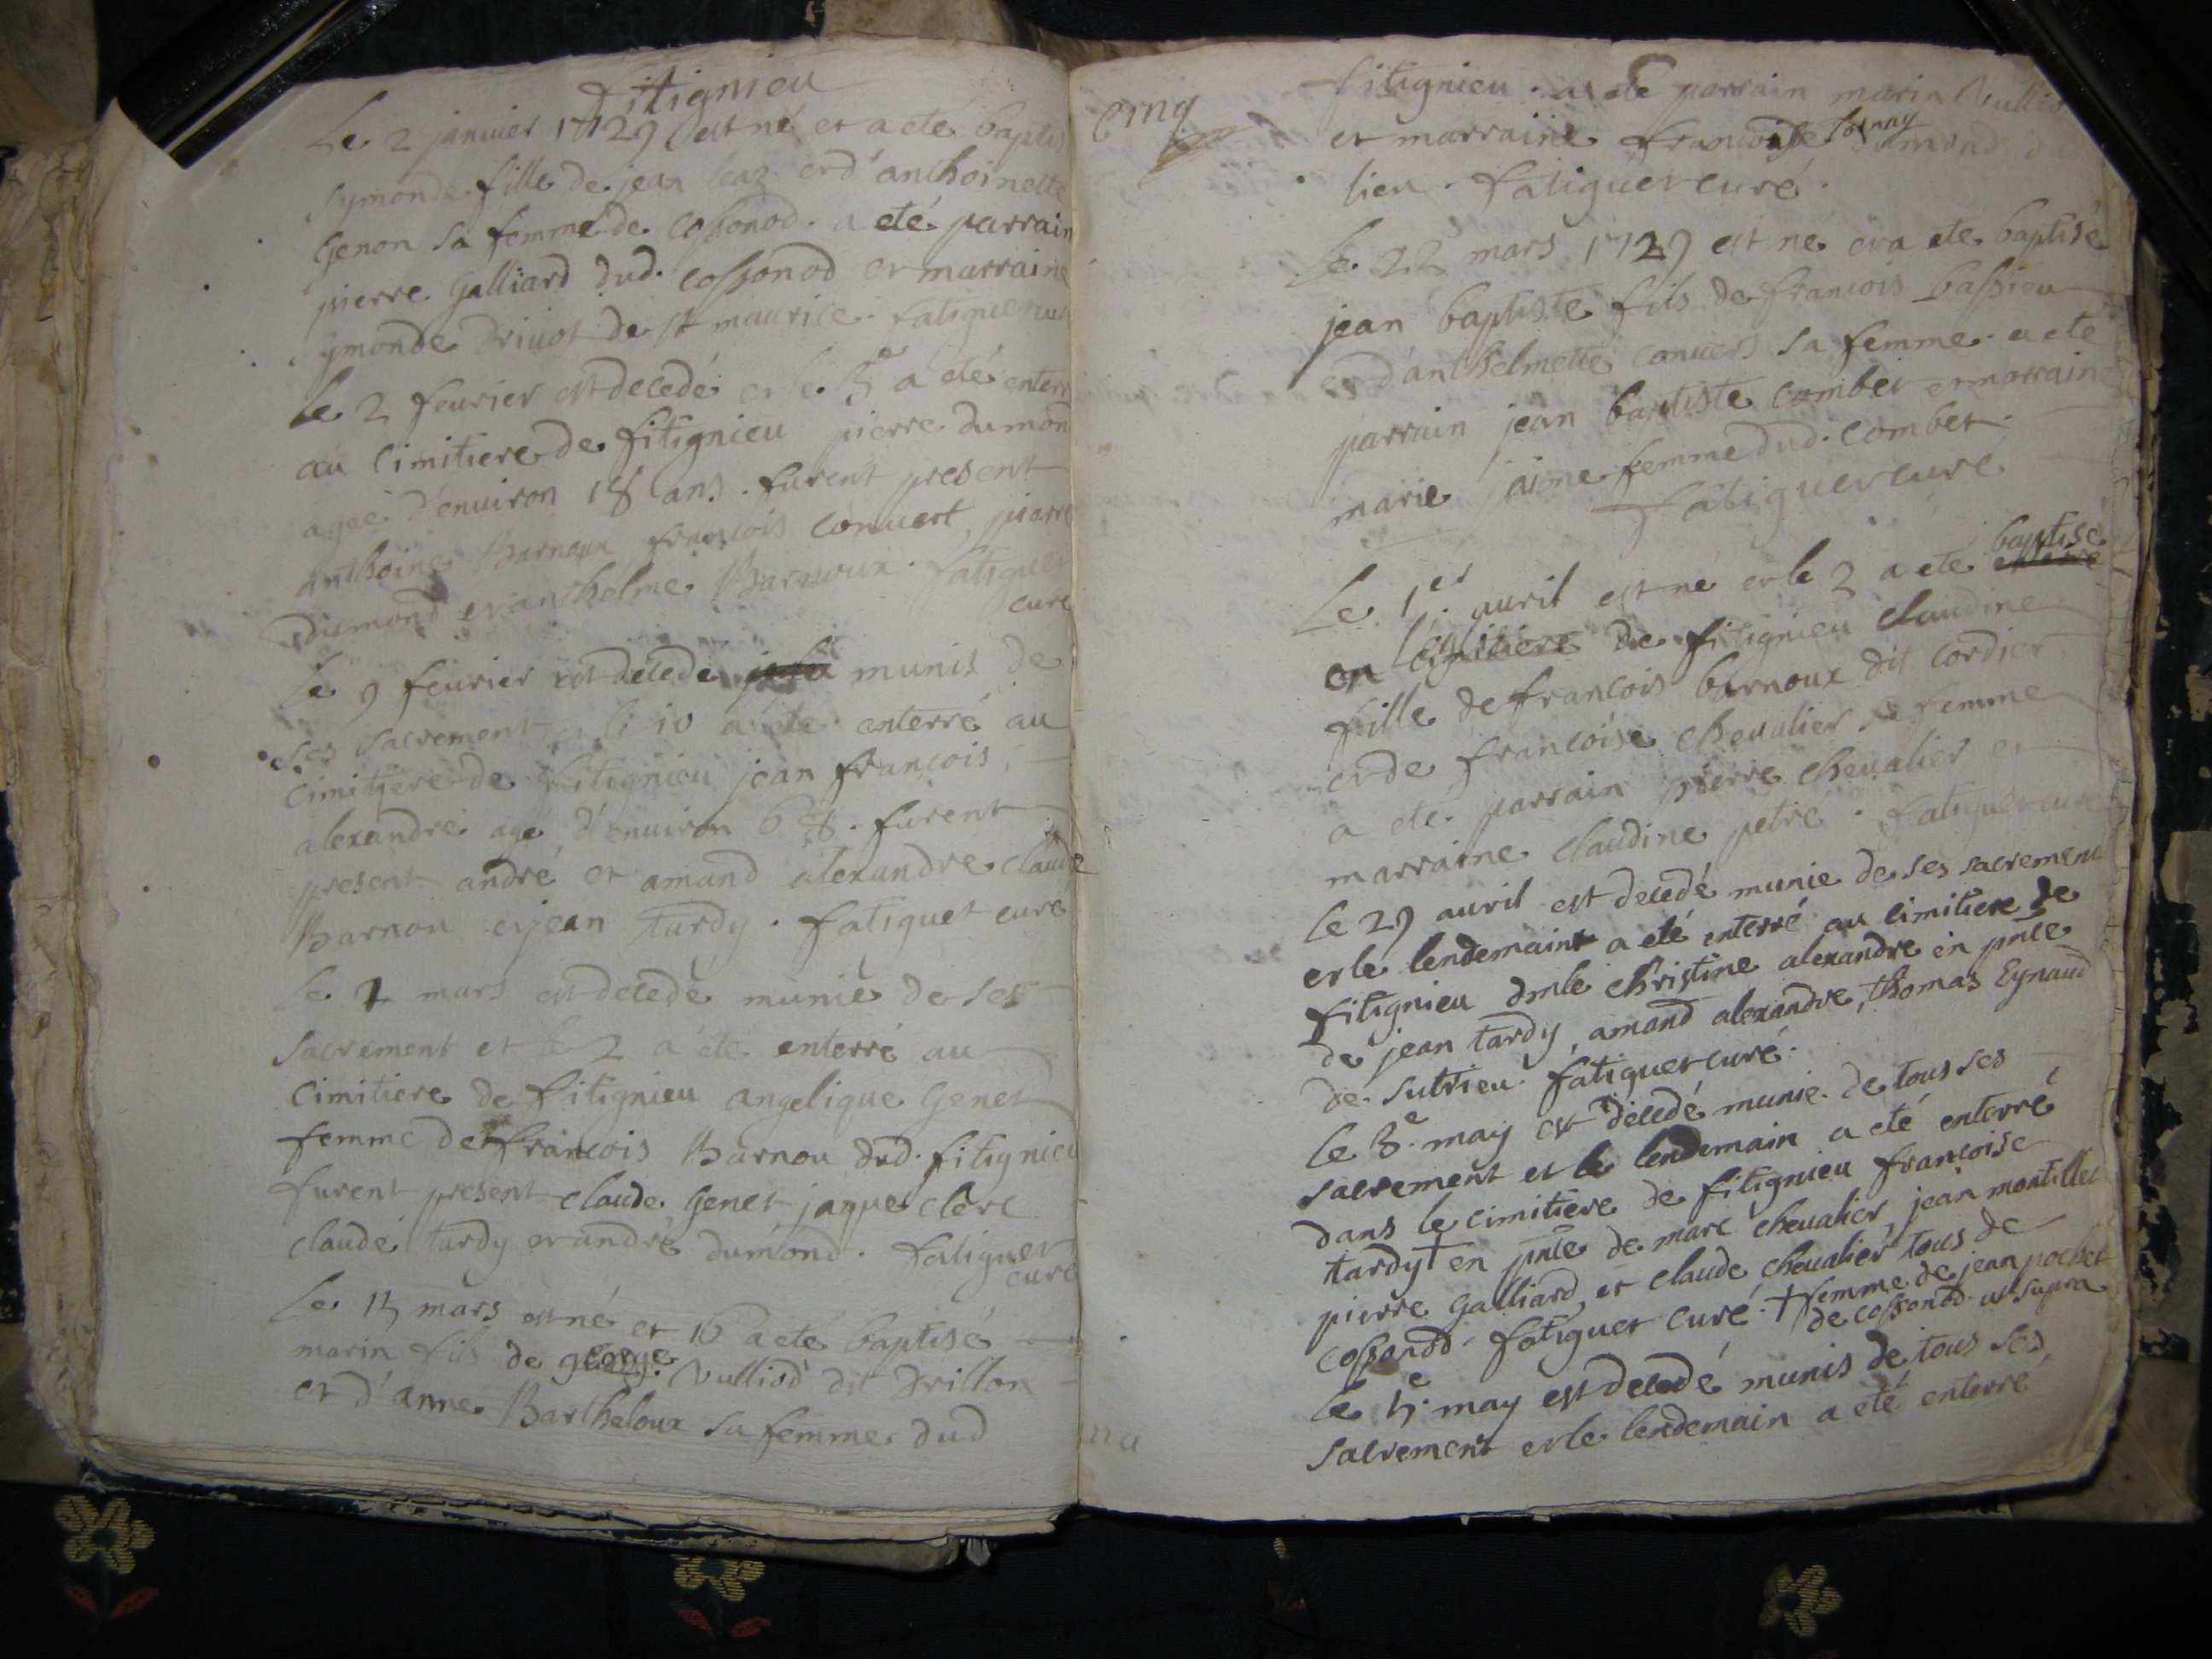 fitignieu
Le 2 janvier 1729 est né et a eté baptis
symonde fille de jean et d'anthoinette
Genon sa femme de cossonod. a eté parrain
pierre Galliard dud. cossonod et marraine
ymonde drivot de st maurice. fatiguet curé
le 2 feurier est decedé et le 3e a eté enterr
au cimitiere de fitignieu pierre dumon
agee d'enuiron 18 ans. furent present
anthoine Barnoux francois convert, pierre
dumond et anthelme Barnoux. fatiguet
curé
Le 9 feurier est decedé munis de
ses sacrement et le 10 a eté enterré au
cimitiere de fitignieu jean francois
alexandre agé d'enuiron 68. furent
present andré et amand alexandre claude
Barnou et jean tardy. fatiguet curé
Le 1 mars est decedé munie de ses
sacrement et le 2 a eté enterré au
cimitiere de fitignieu angelique Genet
femme de francois Barnou dud. fitignieu
furent present claude Genet jaque clerc
claude tardy et andré dumond. fatiguet
curé
Le 15 mars est né et 16 a ete baptisé
marin fils de george Vulliod dit drillon
et d'anne Bartheloux sa femme dud
cinq
fitignieu. a eté parrain marin Vullio
et marraine francoise
lieu. fatiguet curé.
Le 22 mars 1729 est né et a ete baptisé
jean baptiste fils de francois bassieu
et d'anthelmette conuers sa femme. a eté
parrain jean baptiste combet et marraine
marie jaime femme dud. combet.
fatiguet curé
baptisé
Le 1er auril est né et le 2 a eté enterré
de fitignieu claudine
fille de francois barnoux dit cordier
et de francoise cheualier sa femme
a eté parrain pierre cheualier et
marraine claudine petre. fatiguet curé
le 29 auril est decedé munie de ses sacrement
et le lendemaint a eté enterré au cimitiere de
fitignieu dmle christine alexandre en pnce
de jean tardy, amand alexandre, thomas Eynaud
de sutrieu. fatiguet curé.
le 3e may est decedé munie de tous ses
sacrement et le lendemain a eté enterré
dans le cimitiere de fitignieu francoise
tardy † en pnce de marc cheualier, jean montillet
pierre Galliard, et claude cheualier tous de
cossonod. fatiguet curé. † femme de jean pochet
de cossonod. ut supra
le 5e may est decedé munis de tous ses
sacrement et le lendemain a eté enterré